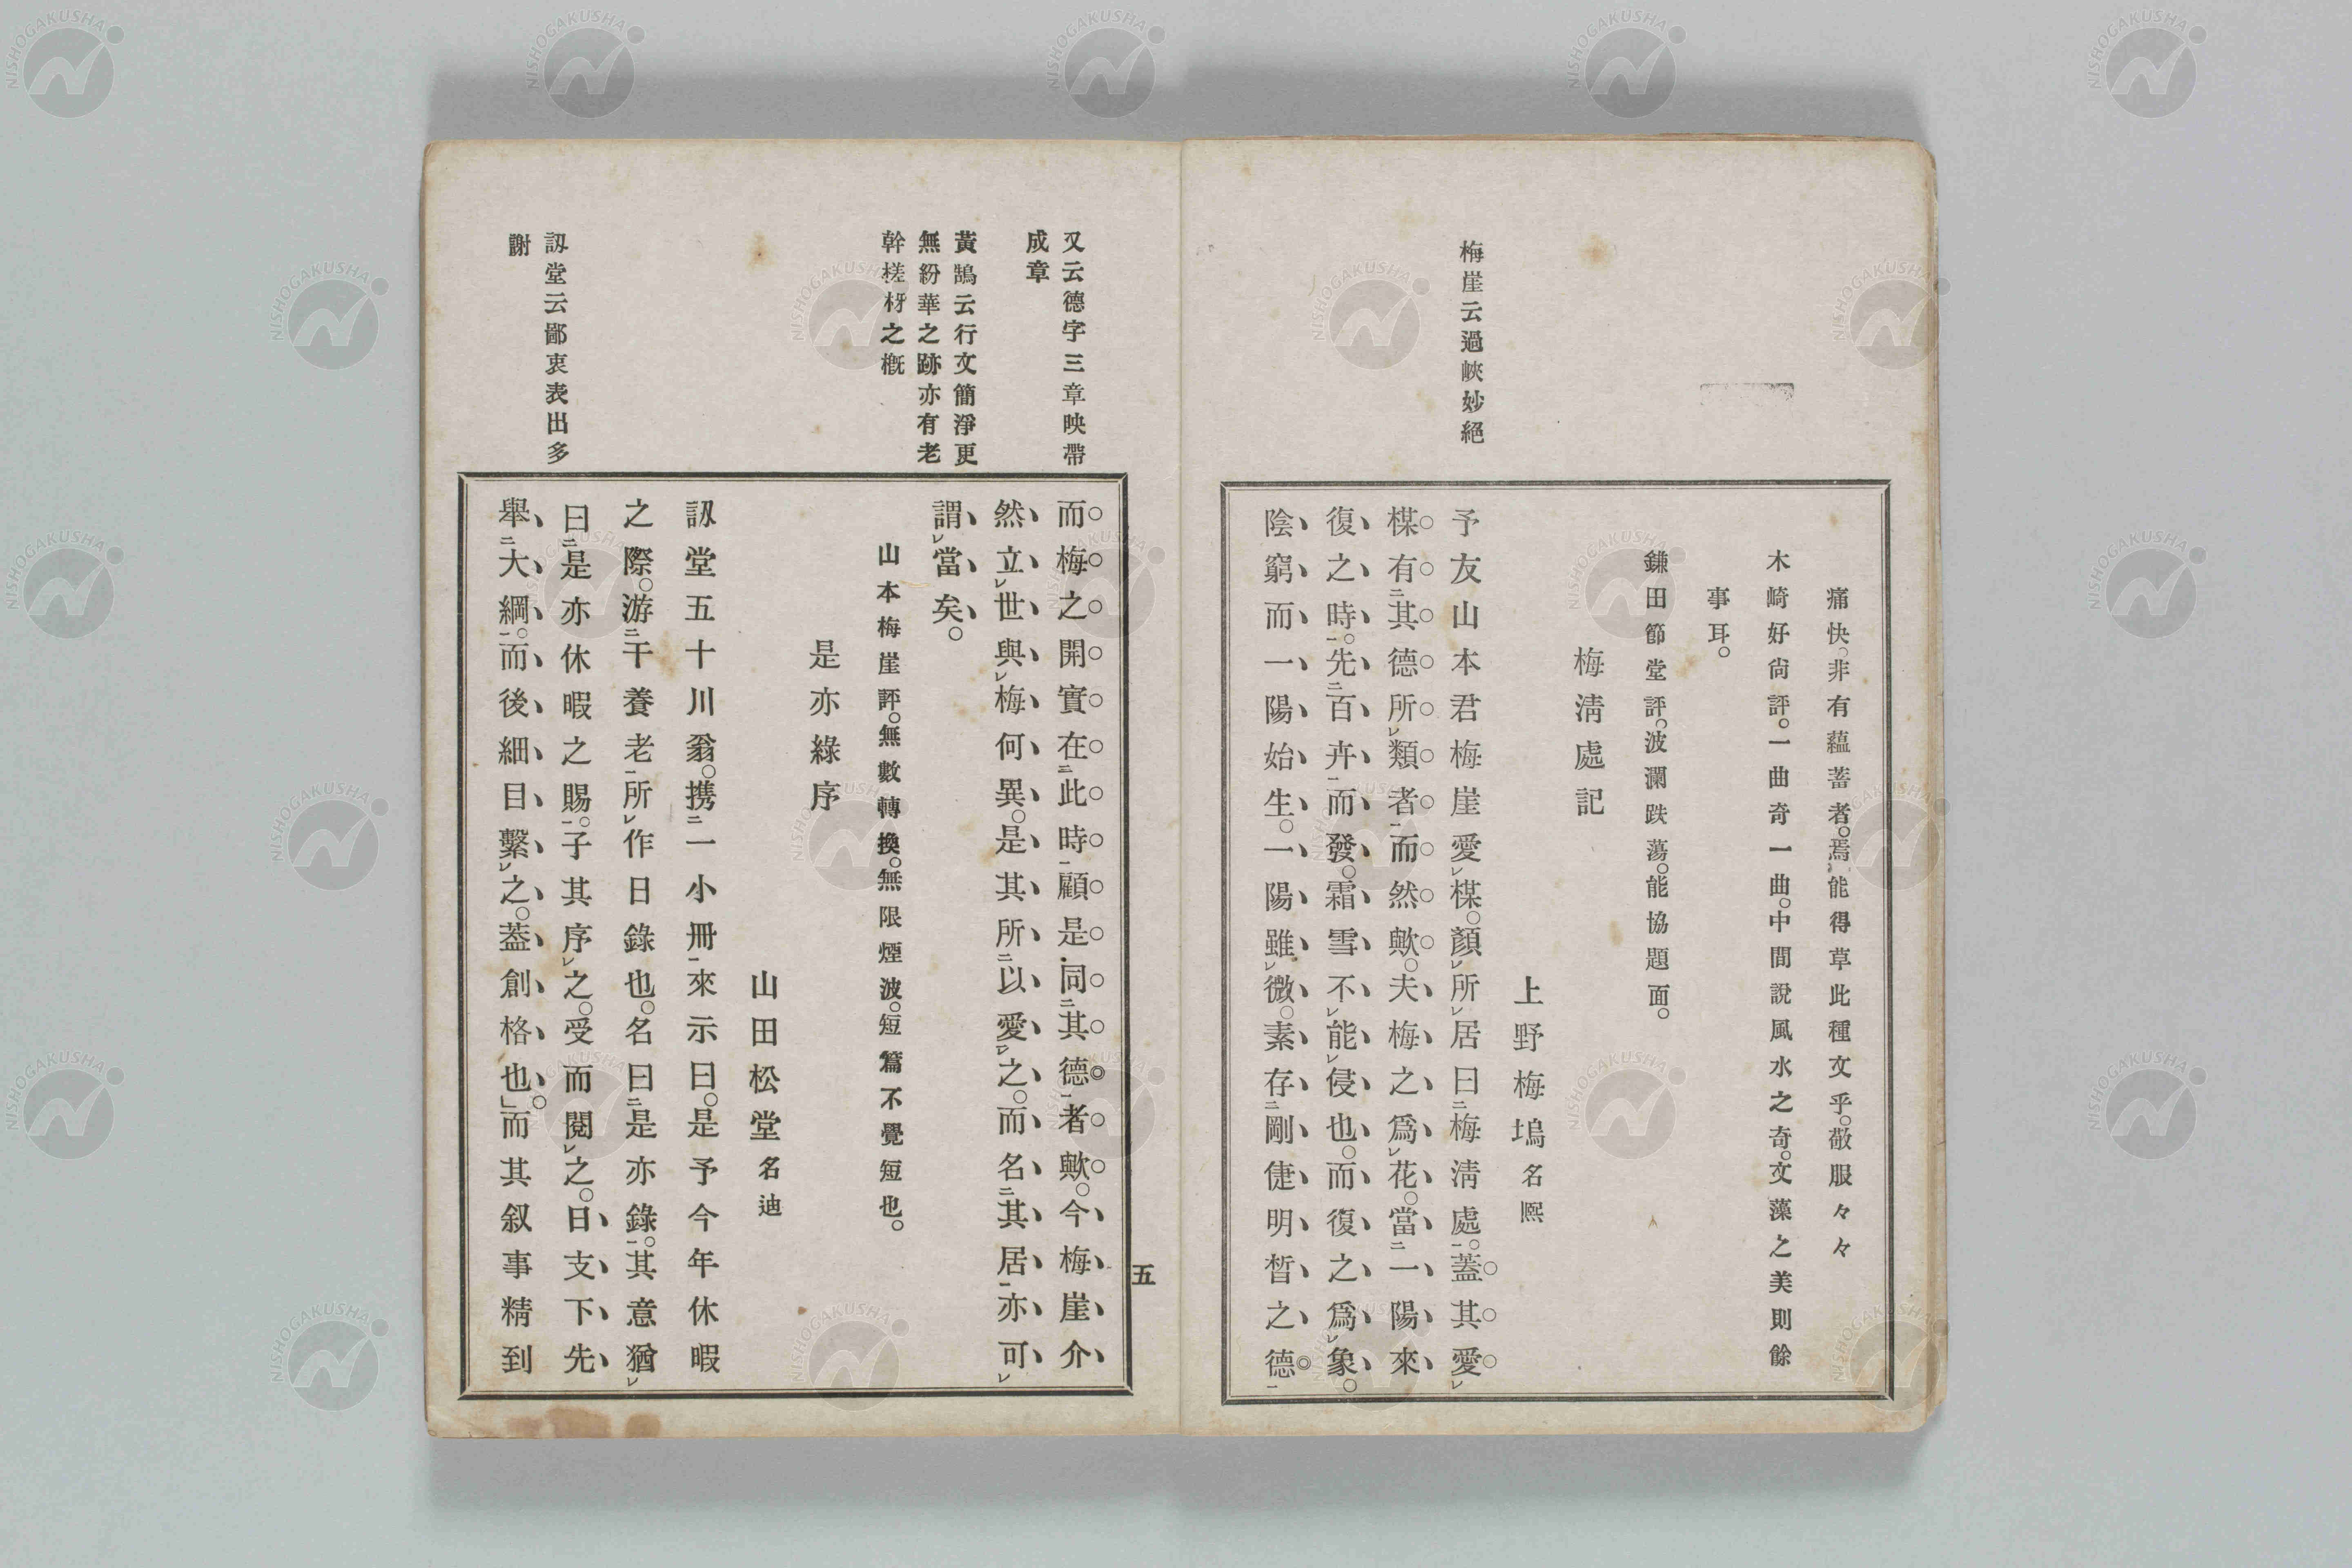 痛快。非有蘊蓄者。焉能得草此種文乎。敬服々々
木崎好尙評。一曲奇一曲。中間說風水之奇。文藻之美則餘
事耳。
鎌田節堂評。波瀾跌蕩。能協題面。
梅淸處記
上野梅塢名熈
梅崖云過峽妙絕
予友山本君梅崖愛レ楳。顏レ所レ居曰二梅淸處一。蓋其愛レ
楳有二其德所レ類者一而然歟。夫梅之爲レ花。當二一陽來
復之時一。先二百卉一而發。霜雪不レ能レ侵也。而復之爲レ象。
陰窮而一陽始生。一陽雖レ微。素存二剛倢明晳之德一
又云德字三章映帶
成章
而梅之開實在二此時一顧是同二其德一者歟。今梅崖介
然立レ世與レ梅何異。是其所二以愛一レ之。而名二其居一亦可レ
謂レ當矣。
黃鵠云行文簡淨更
無紛華之跡亦有老
幹槎枒之槪
山本梅崖評。無數轉換。無限煙波。短篇不覺短也。
是亦綠序
山田松堂名迪
訒堂五十川翁。携二一小冊一來示曰。是予今年休暇
之際。游二于養老一所レ作日錄也。名曰二是亦錄一。其意猶レ
曰二是亦休暇之賜一。子其序レ之。受而閱レ之。日支下先
訒堂云鄙衷表出多
謝
擧二大綱一。而後細目繫レ之。蓋創格也」而其叙事精到
五
NISHOGAKUSHA